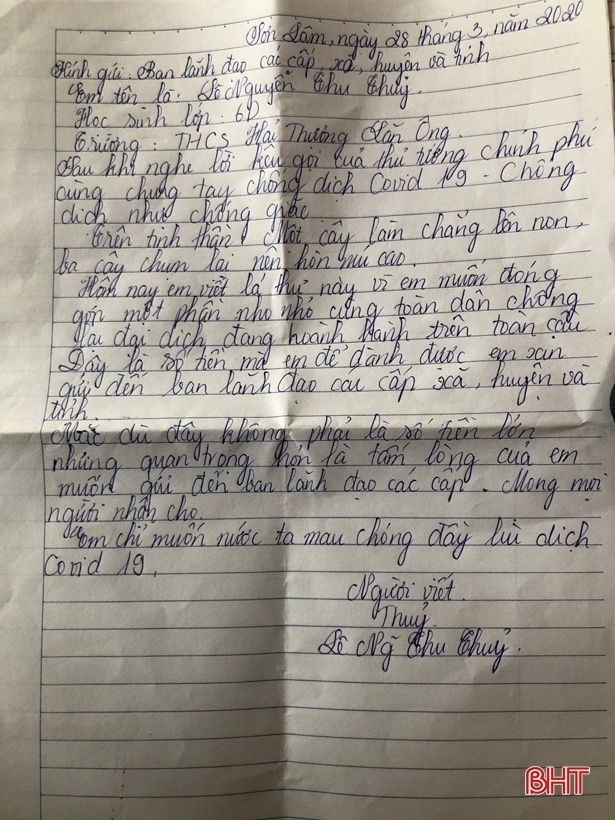 Sơn Lâm, ngày 28 tháng 3, năm 2020
Kính gửi: Ban lãnh đạo các cấp, xã, huyện và tỉnh
Em tên là: Lê Nguyễn Thu Thuỷ.
Học sinh lớp: 6D
Trường: THCS Hải Thượng Lãn Ông.
Sau khi nghe lời kêu gọi của thủ tướng chính phủ
cùng chung tay chống dịch Covid 19 - Chống
dịch như chống giặc
Trên tinh thần. Một cây làm chẳng lên non,
ba cây chụm lại nên hòn núi cao.
Hôm nay em viết lá thư này vì em muốn đóng
góp một phần nho nhỏ cùng toàn dân chống
lại đại dịch đang hoành hành trên toàn cầu
Đây là số tiền mà em để dành được em xin
gửi đến ban lãnh đạo các cấp xã, huyện và
tỉnh.
Mặc dù đây không phải là số tiền lớn
nhưng quan trọng hơn là tấm lòng của em
muốn gửi đến ban lãnh đạo các cấp. Mong mọi
người nhận cho.
Em chỉ muốn nước ta mau chóng đẩy lùi dịch
Covid 19.
Người viết.
Thuỷ
Lê Ng Thu Thuỷ.
BHT